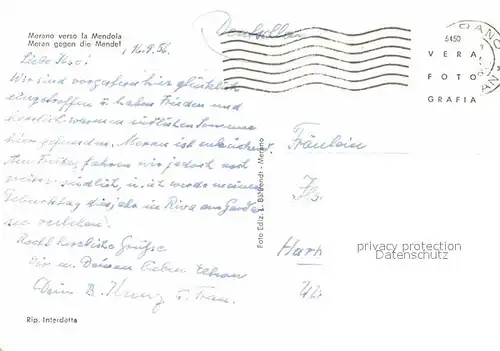 Merano verso la Mendola
Meran gegen die Mendel
16.9.56.
Liebe
Wir sind vorgestern hier glücklich
eingetroffen u. haben Frieden und
herrlich warmen südlichen Sommer
hier gefunden. Meran ist
Am Freitag fahren wir jedoch noch
weiter südlich, u. ich werde meinen
Geburtstag dies Jahr in Riva am Garda-
see verleben.
Recht herzliche Grüße
Dir u. Deinen lieben Eltern
Dein B. Kunz u. Frau.
Rip. Interdetta
Foto Ediz. L. Bährendt - Merano
5450
VERA
FOTO
GRAFIA
Fräulein
privacy protection
Datenschutz